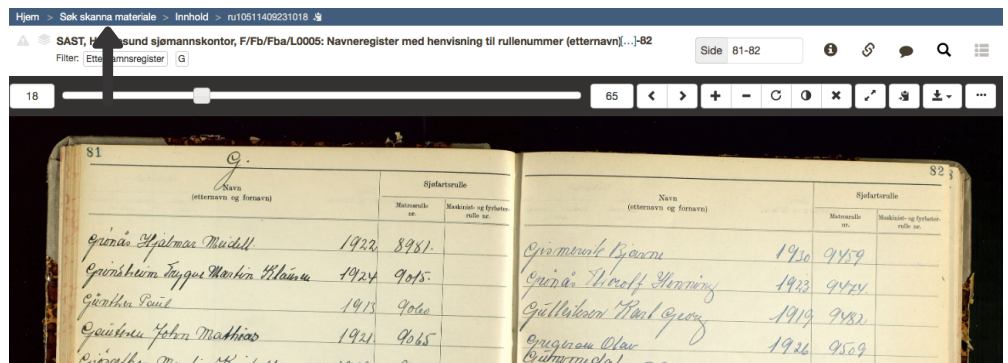 Hjem > Søk skanna materiale > Innhold > ru10511409231018
SAST, H esund sjømannskontor, F/Fb/Fba/L0005: Navneregister med henvisning til rullenummer (etternavn)[...]-82
Side 81-82
Filter: Ette amnsregister G
18
65
81
G.
Navn
(etternavn og fornavn)
Sjøfartsrulle
Matrosrulle nr.
Maskinist- og fyrbøter-rulle nr.
Grønås Hjalmar Meidell. 1922 8981.
Grønsheim Trygve Martin Klausen 1924 9015.
Günther Paul 1913 9060
John Mathias 1921. 9065
82
Navn
(etternavn og fornavn)
Sjøfartsrulle
Matrosrulle nr.
Maskinist- og fyrbøter-rulle nr.
Bjarne 1930 9459
Grønås Thoralf Henning 1923 9474
Gulleiksen Karl Georg 1919 9482
Gregersen Olav 1926 9509